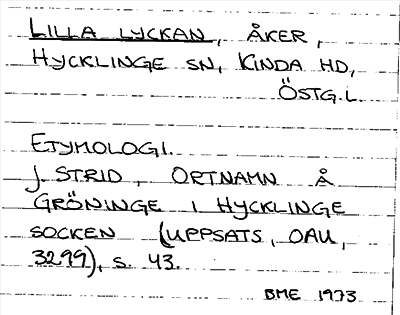 LILLA LYCKAN, ÅKER,
HYCKLINGE SN, KINDA HD,
ÖSTG.L.
ETYMOLOGI.
J. STRID, ORTNAMN Å
GRÖNINGE I HYCKLINGE
SOCKEN (UPPSATS, OAU,
3299), s. 43.
BME 1973